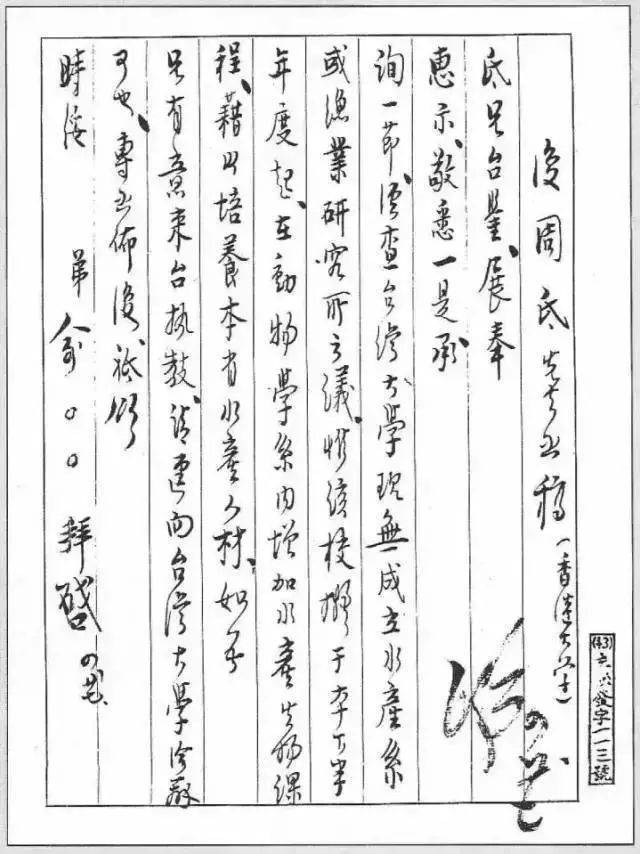 復周氏先生函稿(香港大學)
氏兄台鑒、展奉
惠示、敬悉一是承
詢一節、經查台灣大學現無成立水產系
或漁業研究所之議、惟該校擬于本下半
年度起、在動物學系內增加水產生物課
程、藉以培養本省水產人材、如吾
兄有意來台執教、請逕向台灣大學洽辦
可也、專函佈復、祗頌
時綏
弟俞○○拜啓
(43) 發字一一三號